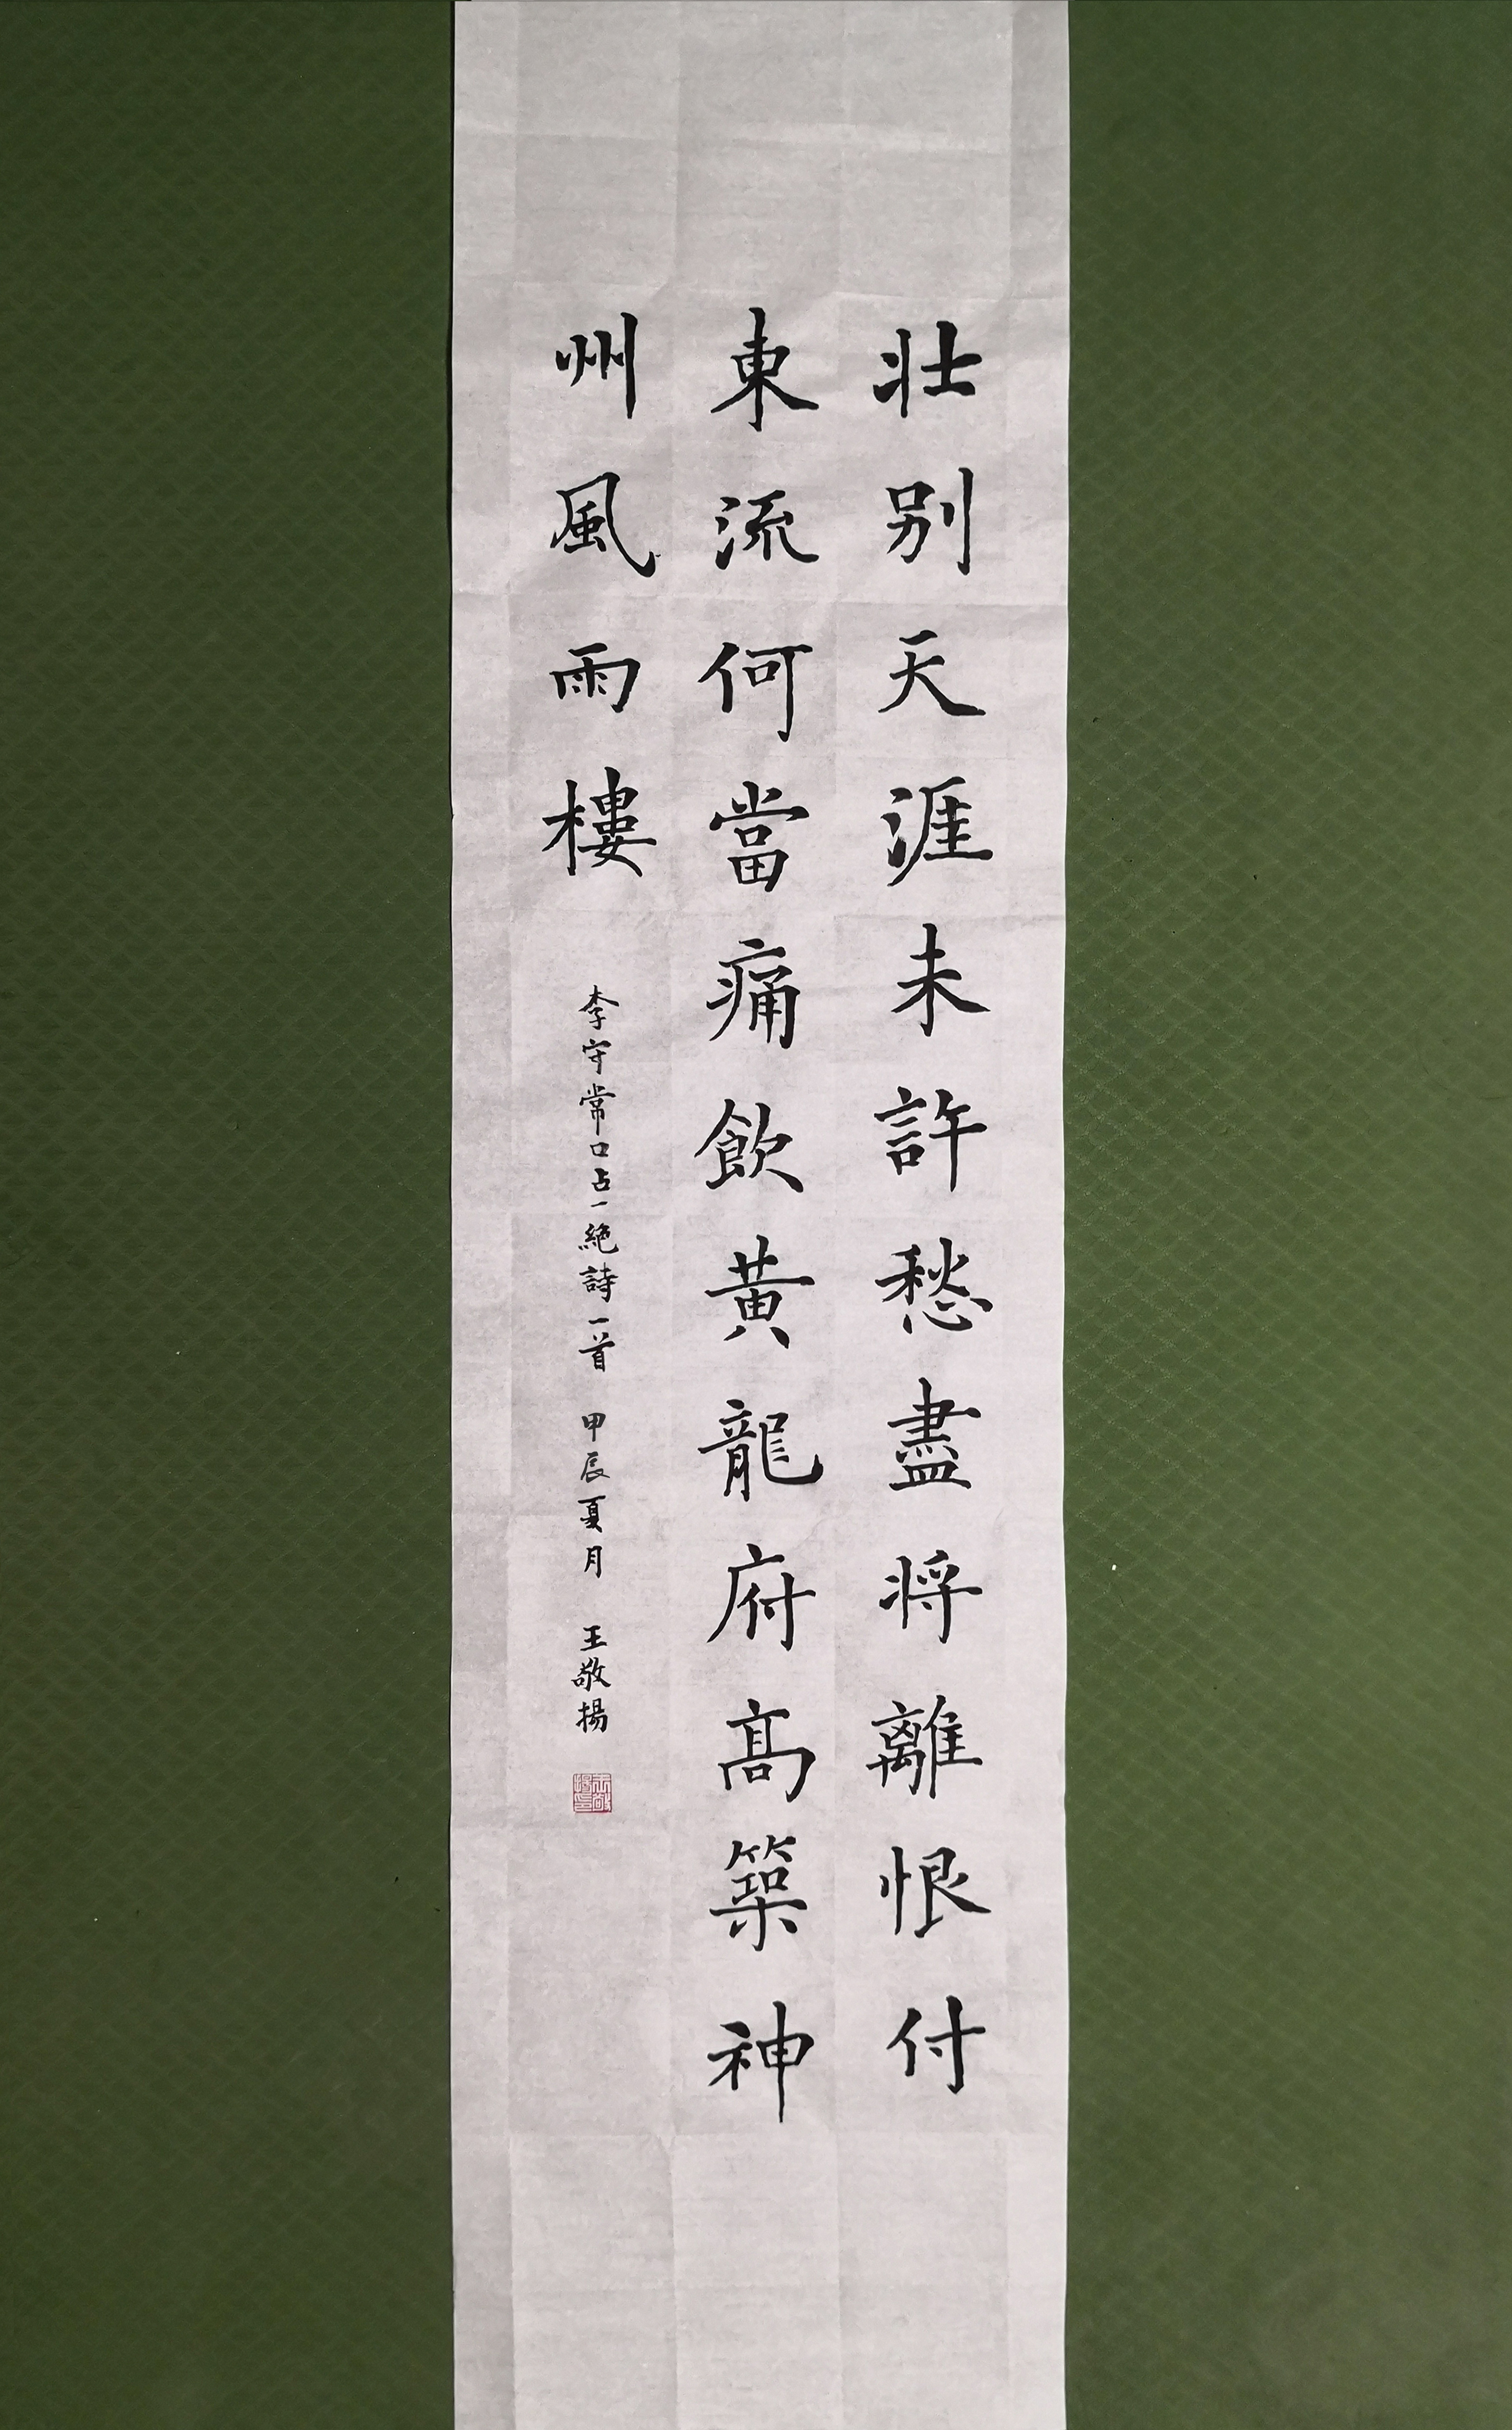 壯别天涯未許愁盡将離恨付
東流何當痛飲黄龍府髙築神
州風雨樓
李守常口占一絶詩一首 甲辰夏月 王敬揚